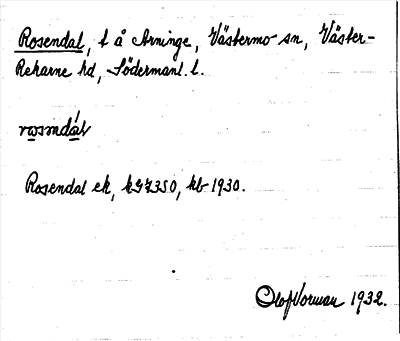 Rosendal, t å Arninge, Västermo sn, Väster-
Rekarne hd, Södermanl. l.
rosndál
Rosendal ek, kb 1930.
Olof Vorman 1932.